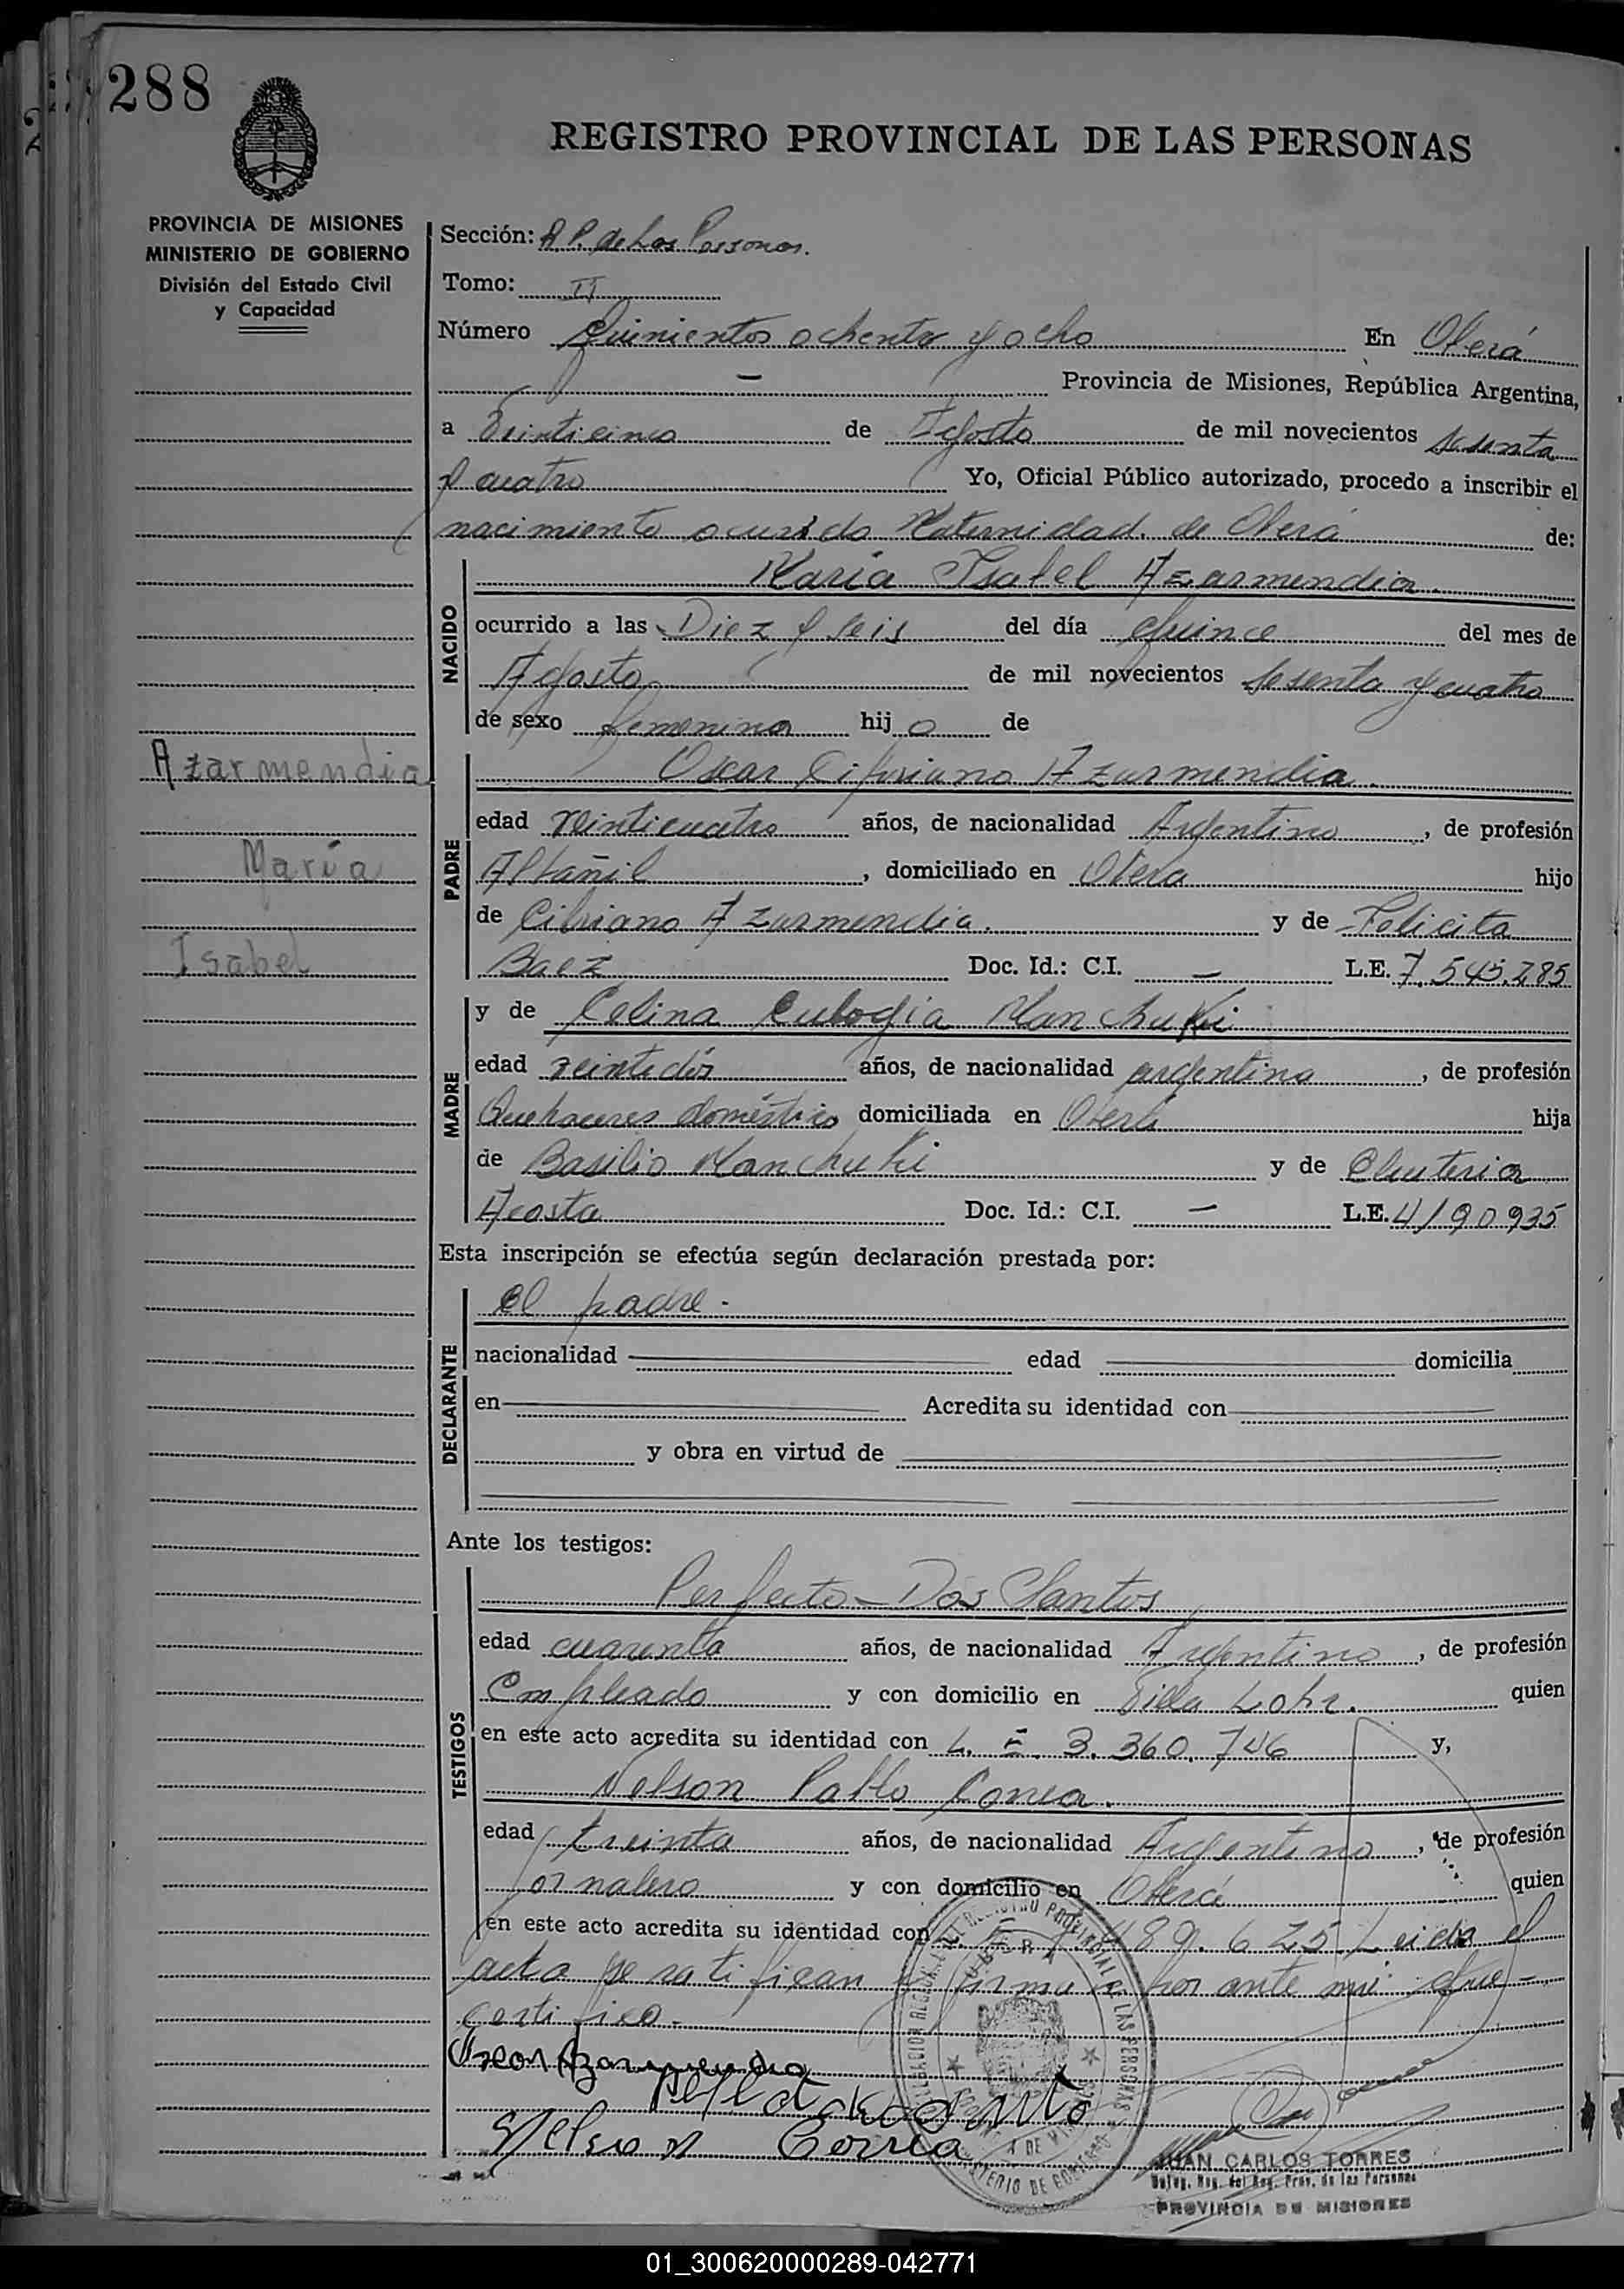 288
REGISTRO PROVINCIAL DE LAS PERSONAS
PROVINCIA DE MISIONES
MINISTERIO DE GOBIERNO
División del Estado Civil
y Capacidad
Sección: R P. de Las Personas.
Tomo: II
Número Quinientos ochenta y ocho En Oberá
— Provincia de Misiones, República Argentina,
a Veinticinco de Agosto de mil novecientos sesenta
y cuatro Yo, Oficial Público autorizado, procedo a inscribir el
nacimiento ocurido Maternidad. de Oberá de:
NACIDO
Maria Isabel Azarmendia.
ocurrido a las Diez y seis del día quince del mes de
Agosto de mil novecientos sesenta y cuatro
de sexo femenino hij a de
Azarmendia
María
Isabel
PADRE
Oscar Cipriano Azarmendia.
edad veinticuatro años, de nacionalidad Argentino, de profesión
Albañil, domiciliado en Oberá hijo
de Cibriano Azarmendia. y de Felicita
Baez Doc. Id.: C.I. — L.E. 7.545.285
MADRE
y de Celina Eulogia Manchuki
edad veintidós años, de nacionalidad argentina, de profesión
Quehaceres doméstico domiciliada en Oberá hija
de Basilio Manchuki y de Eleuteria
Acosta Doc. Id.: C.I. — L.E. 4190935
Esta inscripción se efectúa según declaración prestada por:
DECLARANTE
el padre.
nacionalidad edad domicilia
en Acredita su identidad con
y obra en virtud de
Ante los testigos:
TESTIGOS
Perfecto Dos Santos
edad cuarenta años, de nacionalidad Argentino, de profesión
Empleado y con domicilio en Villa Lohr. quien
en este acto acredita su identidad con L. E. 3.360.746 y,
Nelson Pablo Correa.
edad treinta años, de nacionalidad Argentino, de profesión
Jornalero y con domicilio en Oberá quien
en este acto acredita su identidad con 489.625 Leida el
acta se ratifican y firman por ante mi que
certifico.
Oscar Azarmendia
Nelson Correa
JUAN CARLOS TORRES
PROVINCIA DE MISIONES
01_300620000289-042771